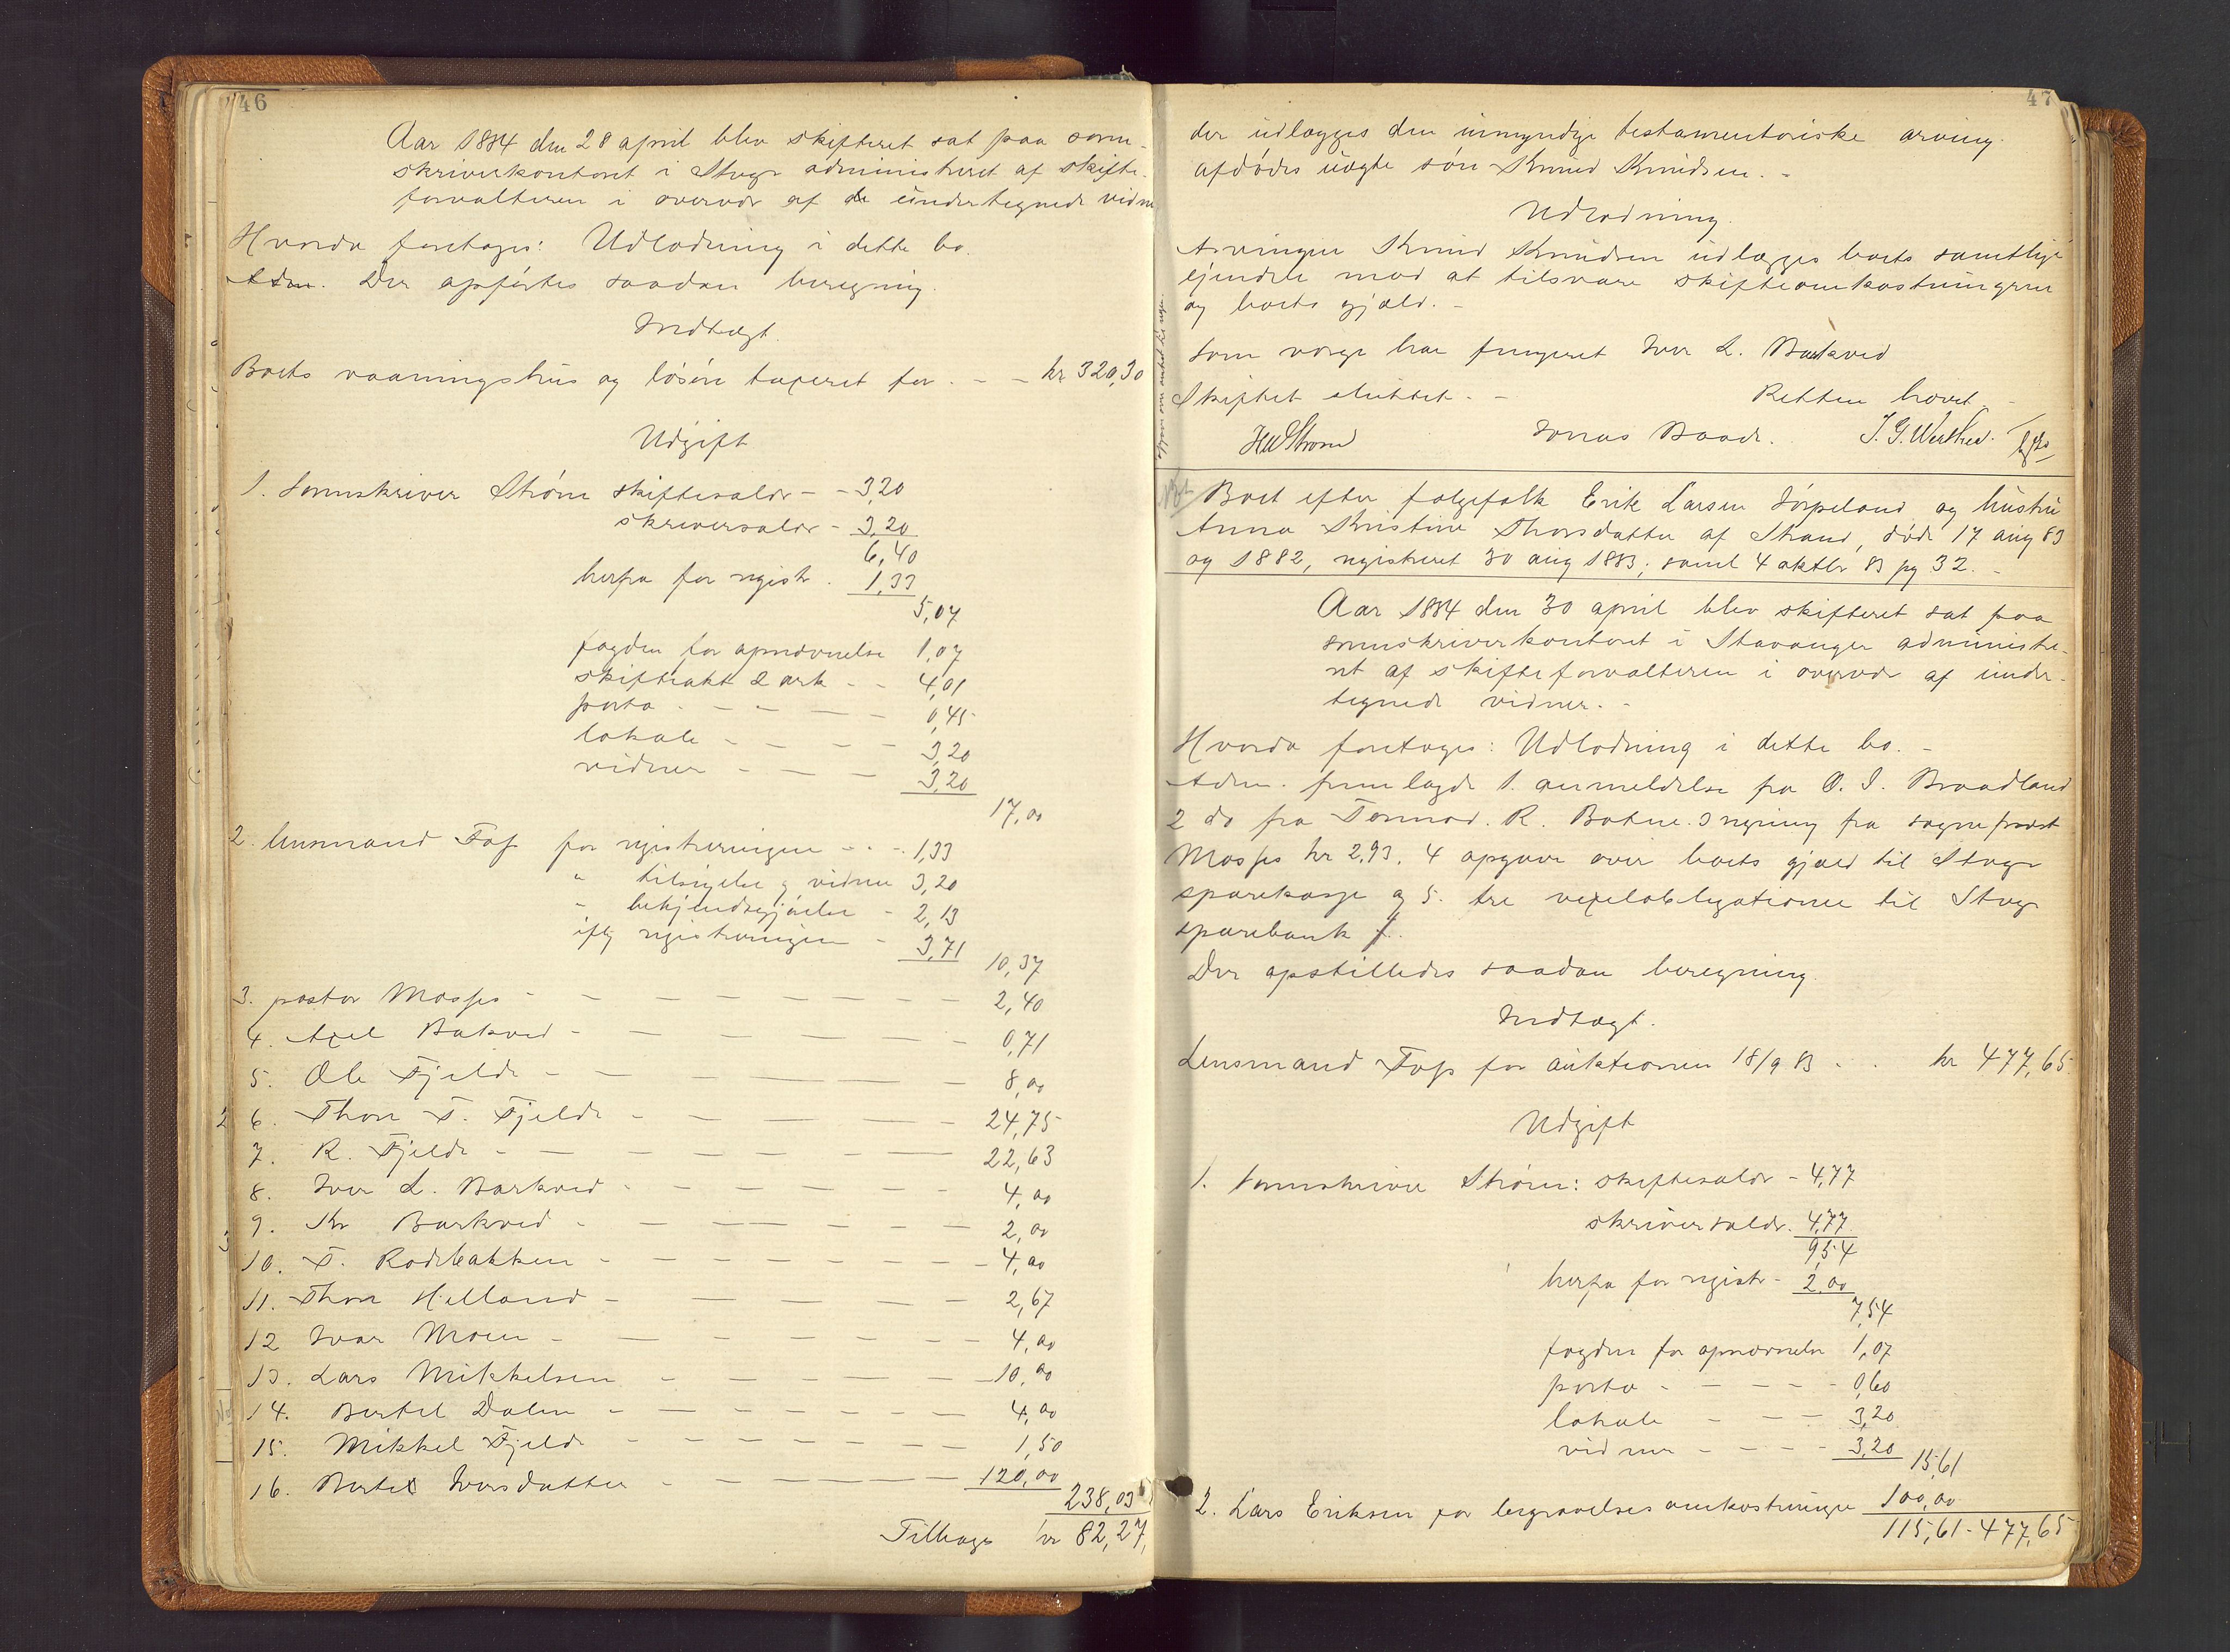 46
Aar 1884 den 28 april blev skifteret sat paa soren-
skriverkontoret i Stvgr administreret af skifte-
forvalteren i overvær af de undertegnede vidn
Hvorda foretoges: Udlodning i dette bo.
Adm. Der opførtes saadan beregning.
Indtægt.
Boets vaaningshus og løsøre taxeret for . – – kr 320,30
Udgift
1. Sorenskriver Strøm skiftesalær – – 3,20
skriversalær – 3,20
6,40
herfra for registr. 1,33
5,07
fogden for opnævnelse 1,07
skifteakt 2 ark – – 4,01
porto – – – – 0,45
lokale – – – – 3,20
vidner – – – 3,20
17,00
2. lensmand Foss for registreringen – – – 1,33
" tilsigelse af vidner 3,20
" bekjendtgjørelse – 2,13
iflg registreringen – 3,71
10,37
3. pastor Mosses – – – – – – – 2,40
4. Axel Bakved – – – – – – 0,71
5. Ole Fjelde – – – – – 8,00
6. Thore T. Fjelde – – – – – 24,75
7. R. Fjelde – – – – – – 22,63
8. Iver L. Barkved – – – – – – 4,00
9. Kr Barkved – – – – – – 2,00
10. T. Rodebakken – – – – – – 4,00
11. Thore Helland – – – – – 2,67
12 Ivar Moen – – – – – – 4,00
13. Lars Mikkelsen – – – – – – 10,00
14. Bertel Dalen – – – – – – 4,00
15. Mikkel Fjelde – – – – – – 1,50
16. Bertel Iversdatter – – – – – 120,00
238,03
Tilbage kr 82,27,
47
der udlægges den umyndige testamentariske arving
afdødes uægte søn Knud Knudsen. –
Udlodning.
Arvingen Knud Knudsen udlægges boets samtlige
ejendele mod at tilsvare skifteomkostningerne
og boets gjæld. –
Som værge har fungeret Iver L. Barkved
Skiftet sluttet. – Retten hævet. –
HWStrøm Jonas Baade. J. G. Wersted.
Boet efter folgefolk Erik Larsen Jørpeland og hustru
Anna Kristine Thorsdatter af Strand, døde 17 aug 83
og 1882, registreret 30 aug 1883, saml 4 oktbr 83 pg 32. –
Aar 1884 den 30 april blev skifteret sat paa
sorenskriverkontoret i Stavanger administre-
ret af skifteforvalteren i overvær af under-
tegnede vidner. –
Hvorda foretoges: Udlodning i dette bo. –
Adm. fremlagde 1. anmeldelse fra O. I. Braadland
2 do fra Tormod. R. Botne. 3 regning fra sogneprest
Mosses kr 2,93. 4 opgave over boets gjæld til Stvgr
sparekasse og 5. tre vexelobligationer til Stvgr
sparebank
Der opstilledes saadan beregning.
Indtægt.
Lensmand Foss for auktionen 18/9 83 . . kr 477,65
Udgift
1. Sorenskriver Strøm: skiftesalær – 4,77
skriversalær. 4,77
9,54
herfra for registr – 2,00
7,54
fogden for opnævnelse 1,07
porto – – – – – 0,60
lokale – – – – 3,20
vidner – – – – 3,20
15,61
2. Lars Eriksen for begravelsesomkostninger 100,00
115,61 – 477,65